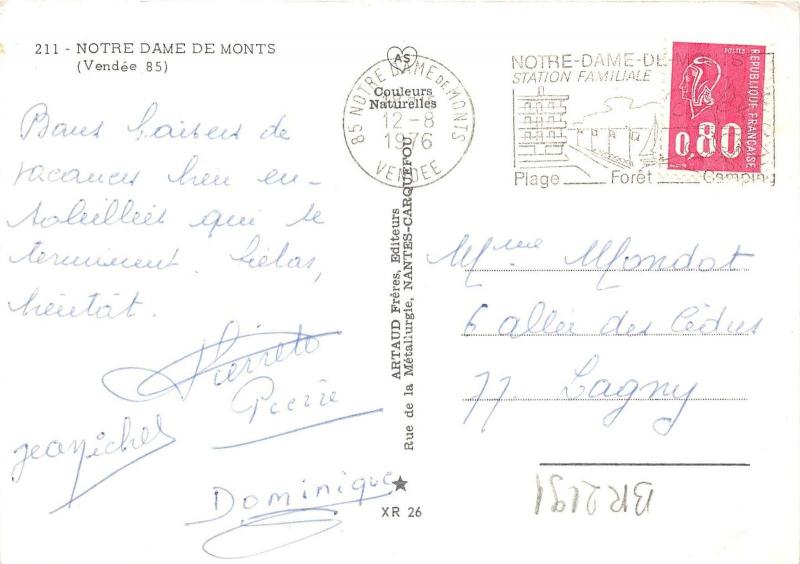 211 - NOTRE DAME DE MONTS
(Vendée 85)
Bons baisers de
vacances bien en-
soleillées qui se
terminent. hélas,
bientôt.
Pierrete
Pierre
jeanmichel
Dominique
AS
Couleurs
Naturelles
85 NOTRE DAME DE MONTS
12-8
1976
VENDEE
NOTRE-DAME-DE-MONTS
STATION FAMILIALE
Plage Forêt Camping
POSTES
REPUBLIQUE FRANÇAISE
0,80
ARTAUD Frères, Editeurs
Rue de la Métallurgie, NANTES-CARQUEFOU
XR 26
Mme Mondot
6 allée des Cèdres
77. Lagny
BR2191